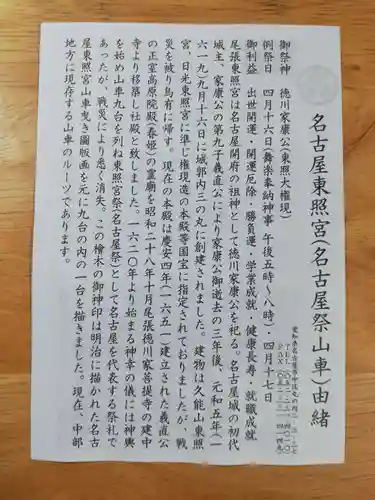 名古屋東照宮(名古屋祭山車)由緒
愛知県名古屋市中区丸の内二ー三ー三七
御祭神　徳川家康公(東照大権現)
例祭日　四月十六日(舞楽奉納神事 午後五時〜八時)・四月十七日
御利益　出世開運・開運厄除・勝負運・学業成就・健康長寿・就職成就
尾張東照宮は名古屋開府の祖神として徳川家康公を祀る。名古屋城の初代
城主、家康公の第九子義直公により家康公御逝去の三年後、元和五年(一
六一九)九月十六日に城郭内三の丸に創建されました。建物は久能山東照
宮、日光東照宮に準じ権現造の本殿等国宝に指定されておりましたが、戦
災を被り烏有に帰す。現在の本殿は慶安四年(一六五一)建立された義直公
の正室高原院殿(春姫)の霊廟を昭和二十八年十月尾張徳川家菩提寺の建中
寺より移築し社殿と致しました。一六二〇年より始まる神幸の儀には神輿
を始め山車九台を列ね東照宮祭(名古屋祭)として名古屋を代表する祭礼で
あったが、戦災により悉く消失。この檜木の御神印は明治に描かれた名古
屋東照宮山車曳き図版画を元に九台の内の一台を描きました。現在、中部
地方に現存する山車のルーツであります。